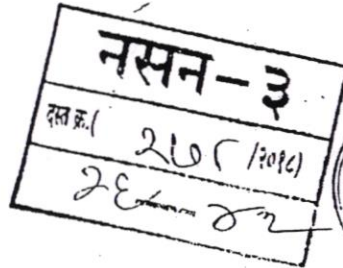 नसन-३
दस्त क्र.( २७८ /२०१८)
२६ — ४२